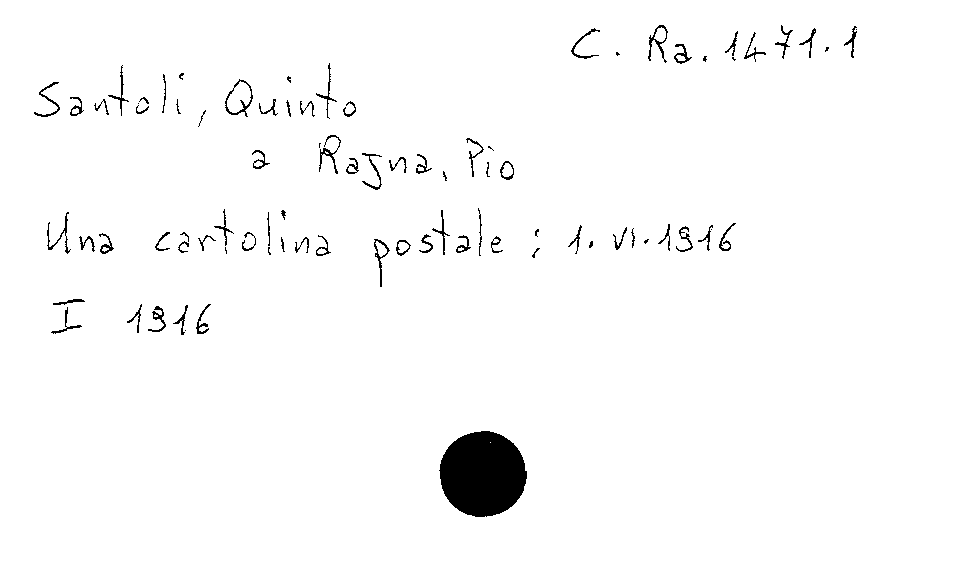 C. Ra. 1471.1
Santoli, Quinto
a Rajna, Pio
Una cartolina postale ; 1. VI. 1916
I 1916